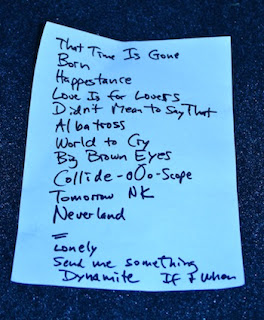 That Time Is Gone
Born
Happestance
Love Is for Lovers
Didn't Mean to Say That
Albatross
World to Cry
Big Brown Eyes
Collide-oOo-Scope
Tomorrow NK
Neverland
=
Lonely
Send me something
Dynamite If & When